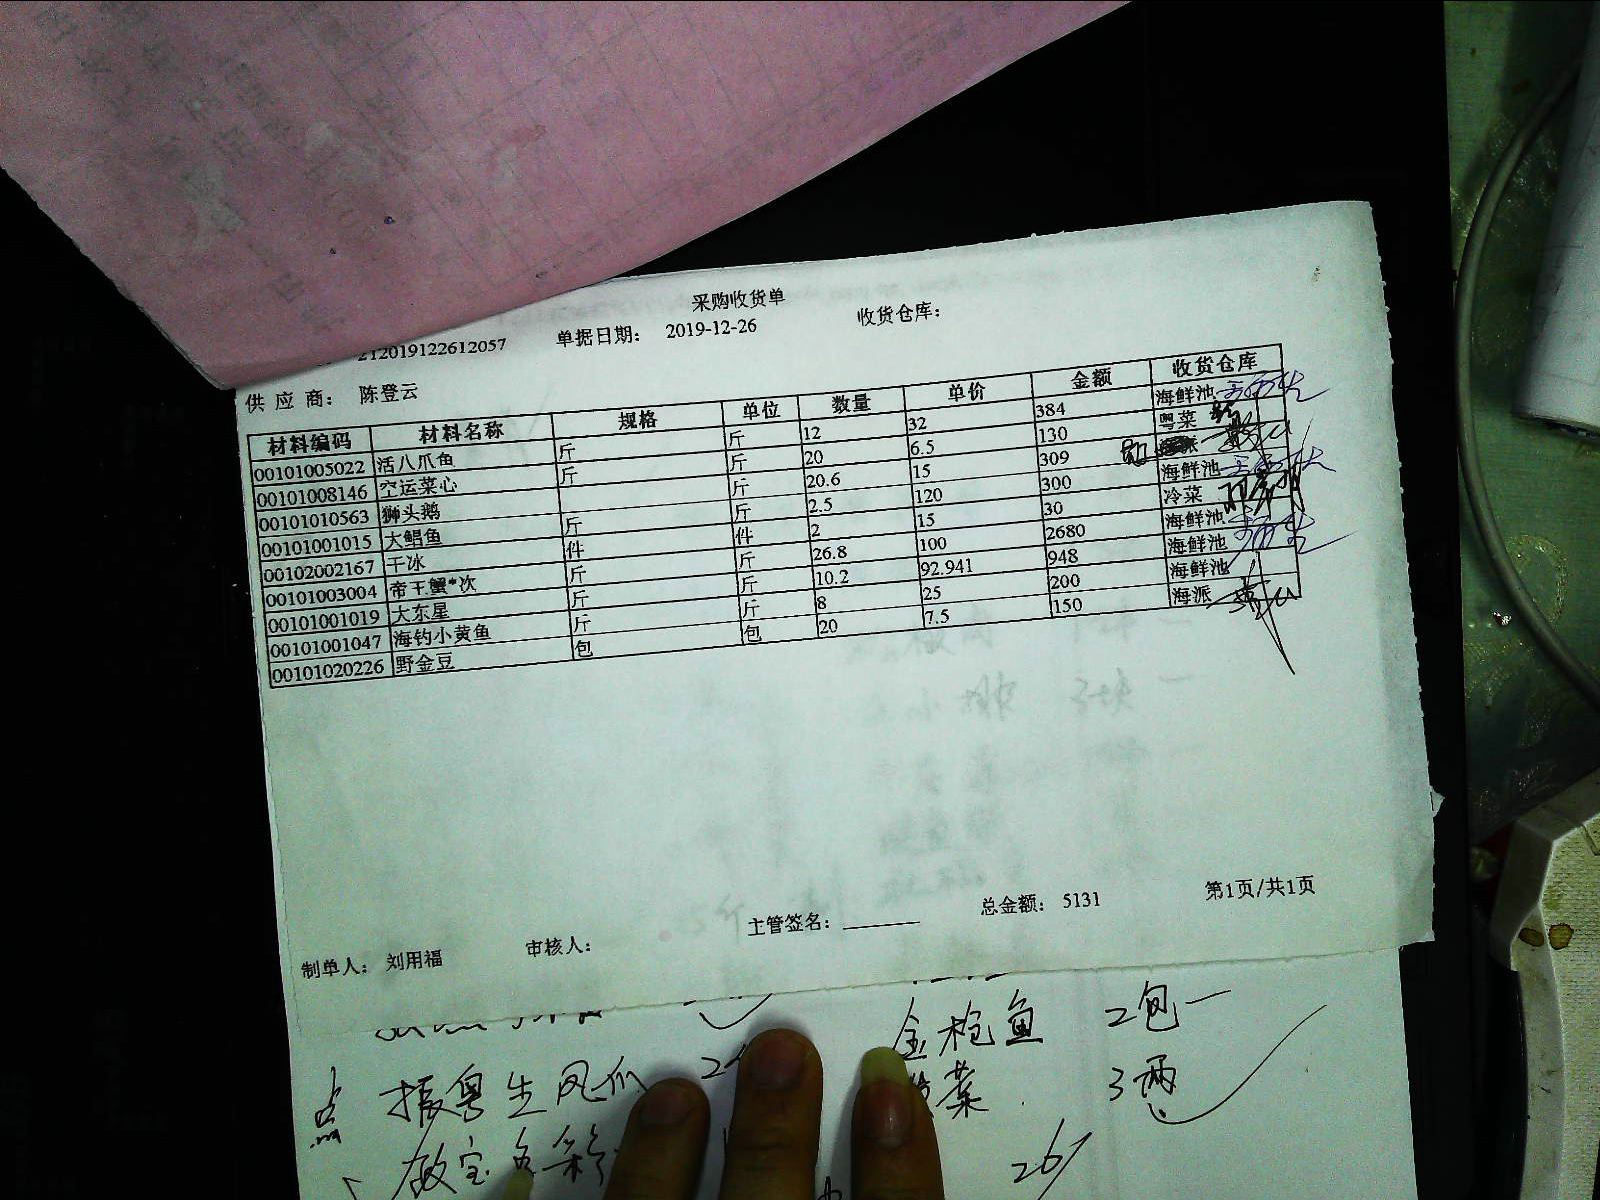 采购收货单
212019122612057 单据日期: 2019-12-26 收货仓库:
供 应 商: 陈登云
材料编码 材料名称 规格 单位 数量 单价 金额 收货仓库
00101005022 活八爪鱼 斤 斤 12 32 384 海鲜池
00101008146 空运菜心 斤 斤 20 6.5 130 粤菜
00101010563 狮头鹅 斤 20.6 15 309
00101001015 大鲳鱼 斤 斤 2.5 120 300 海鲜池
00102002167 干冰 件 件 2 15 30 冷菜
00101003004 帝王蟹*次 斤 斤 26.8 100 2680 海鲜池
00101001019 大东星 斤 斤 10.2 92.941 948 海鲜池
00101001047 海钓小黄鱼 斤 斤 8 25 200 海鲜池
00101020226 野金豆 包 包 20 7.5 150 海派
制单人: 刘用福 审核人: 主管签名: 总金额: 5131 第1页/共1页
金枪鱼 2包
3两
26/